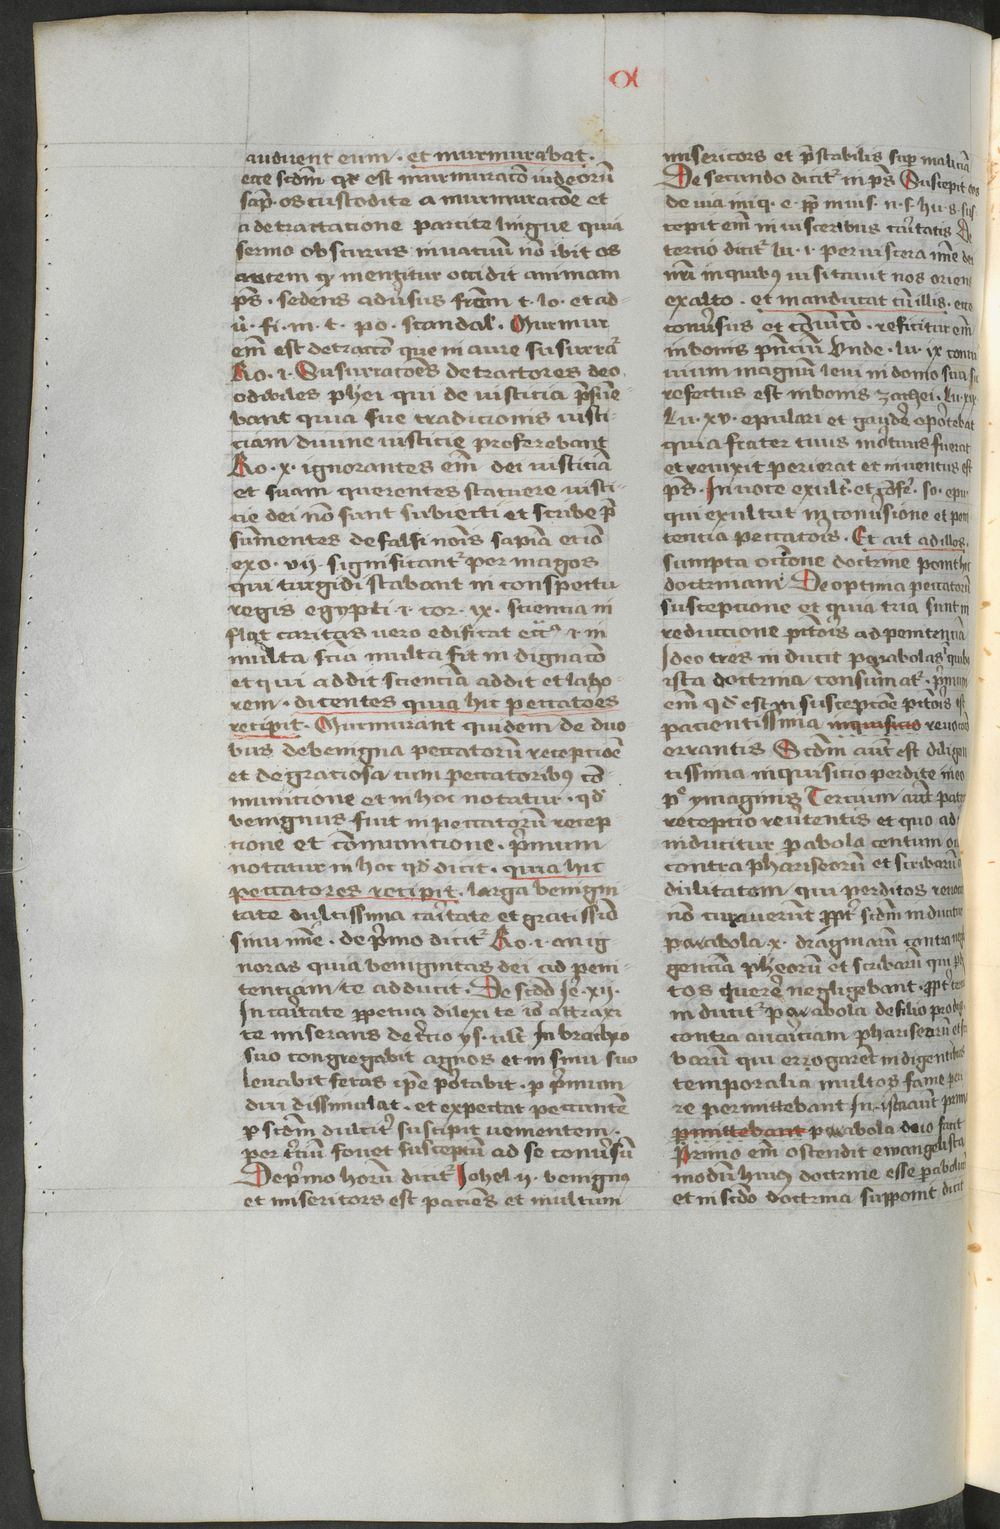 audirent eum · et murmurabāt ·
ecce scdm̄ qđ est murmuracō iudeorū
sap̄ · os custodite a murmuracōe et
a detractacione parcite lingue quia
sermo obscurus in vacuū nō ibit os
autem qđ mengitur occidit animam
p̄s · sedens adūsus frēm t · lo · et ad-
ū · fi · m · t · po · scandal̄ · Murmur
em̄ est detraccō que in aure susurrat̄
Ro · i · Susurracōes detractores deo
odibiles phei qui de iusticia p̄sūe
bant quia sue tradicionis iusti-
ciam divine iusticie proferebant
Ro · x · ignorantes em̄ dei iusticiā
et suam querentes statuere iusti-
cie dei nō sunt subiecti et scribe p̄
sumentes de falsi nōis sapīa et iō
exo · vij · significant̄ per magos
qui turgidi stabant in conspectu
regis egypti i · cor · ix · sciencia in
flat caritas vero edificat ecc̄s · i · in
multa scīa multa fit indignacō
et qui addit scienciā addit et labo-
rem · dicentes quia hic peccatōes
recipit · Murmurant quidem de duo
bus de benigna peccatorū recepcōe
et de graciosa cum peccatoribꝰ cō-
municione et in hoc notatur · qđ
benignus fuit in peccatorū recep-
cione et cōmunicione · p̄mum
notatur in hoc qđ dicit · quia hic
peccatores recipit · larga benigni
tate dulcissima caritate et gratissīo
sinu mīe · de p̄mo dicit̄ Ro · i · an ig-
noras quia benignitas dei ad peni-
tenciam te adducit · De scdō Ie · xij ·
In caritate ꝑpetua dilexi te iō attraxi
te miserans de t̄cio ys · ult̄ In brachio
suo congregabit agnos et in sinu suo
levabit fetas ip̄e portabit · ꝑ p̄mum
diu dissimulat · et expectat peccantē
ꝑ scdm̄ dulcit̄ suscipit venientem ·
per t̄ciū fovet susceptū ad se conūsū
De p̄mo horū dicit̄ Iohel ij · benignꝰ
et misericors est paciēs et multum
misericors et p̄stabilis sup maliciā
De secundo dicit̄ in p̄s Suscepit
de iva iniq · e · pp̄ m ius · n · s · hu · s · sus
cepit em̄ in visceribus caritatis
tercio dicit̄ lu · i · per viscera mīe dei
nr̄i in quibꝰ visitavit nos oriens
ex alto · et manducat cū illis · ecce
conūsus et cōvictō · reficitur em̄
in bonis pn̄cium Unde · lu · ix
vivium magnū levi in domo sua
refectus est in bonis zachei · lu · xix
Lu · xv · epulari et gaudē oportebat
quia frater tuus mortuus fuerat
et revixit perierat et inventus est
p̄s · In voce exult̄ · et cōfe · so · epu
qui exultat in conūsione et peni
tentia peccatoīs · Et ait ad illos
sumpta occīone doctrine ponit hic
doctrinam De optima peccatorū
suscepcione et quia tria sunt in
reduccione pctōis ad penitenciā
Ideo tres inducit parabolas quibꝰ
ista doctrina consumat̄ · p̄mum
em̄ qđ est in suscepcōe pctōis est
pacientissima inquisicio revocacō
errantis Scdm̄ aūt est diligen
tissima inquisicio perdite in eo
p̄e ymaginis Tercium aūt pat̄
recepcio revertentis et quo ad
inducitur ꝑabola centum
contra phariseorū et scribarū
dulitatem qui perditos
nō curaverūt ꝓpt̄ scdm̄ inducitur
parabola x · dragmarū contra negli
genciā pheorū et scribarū qui
tos querē negligebant · ꝓpt̄
inducit̄ parabola de filio prodigo
contra avariciam phariseorū et
barū qui errogarent indigentibus
temporalia multos fame peri
re permittebant In ista aūt prima
permittebant parabola duo facit
Primo em̄ ostendit ewangelista
modū huiꝰ doctrine esse ꝑabolicū
et in scdō doctrina supponit dicit